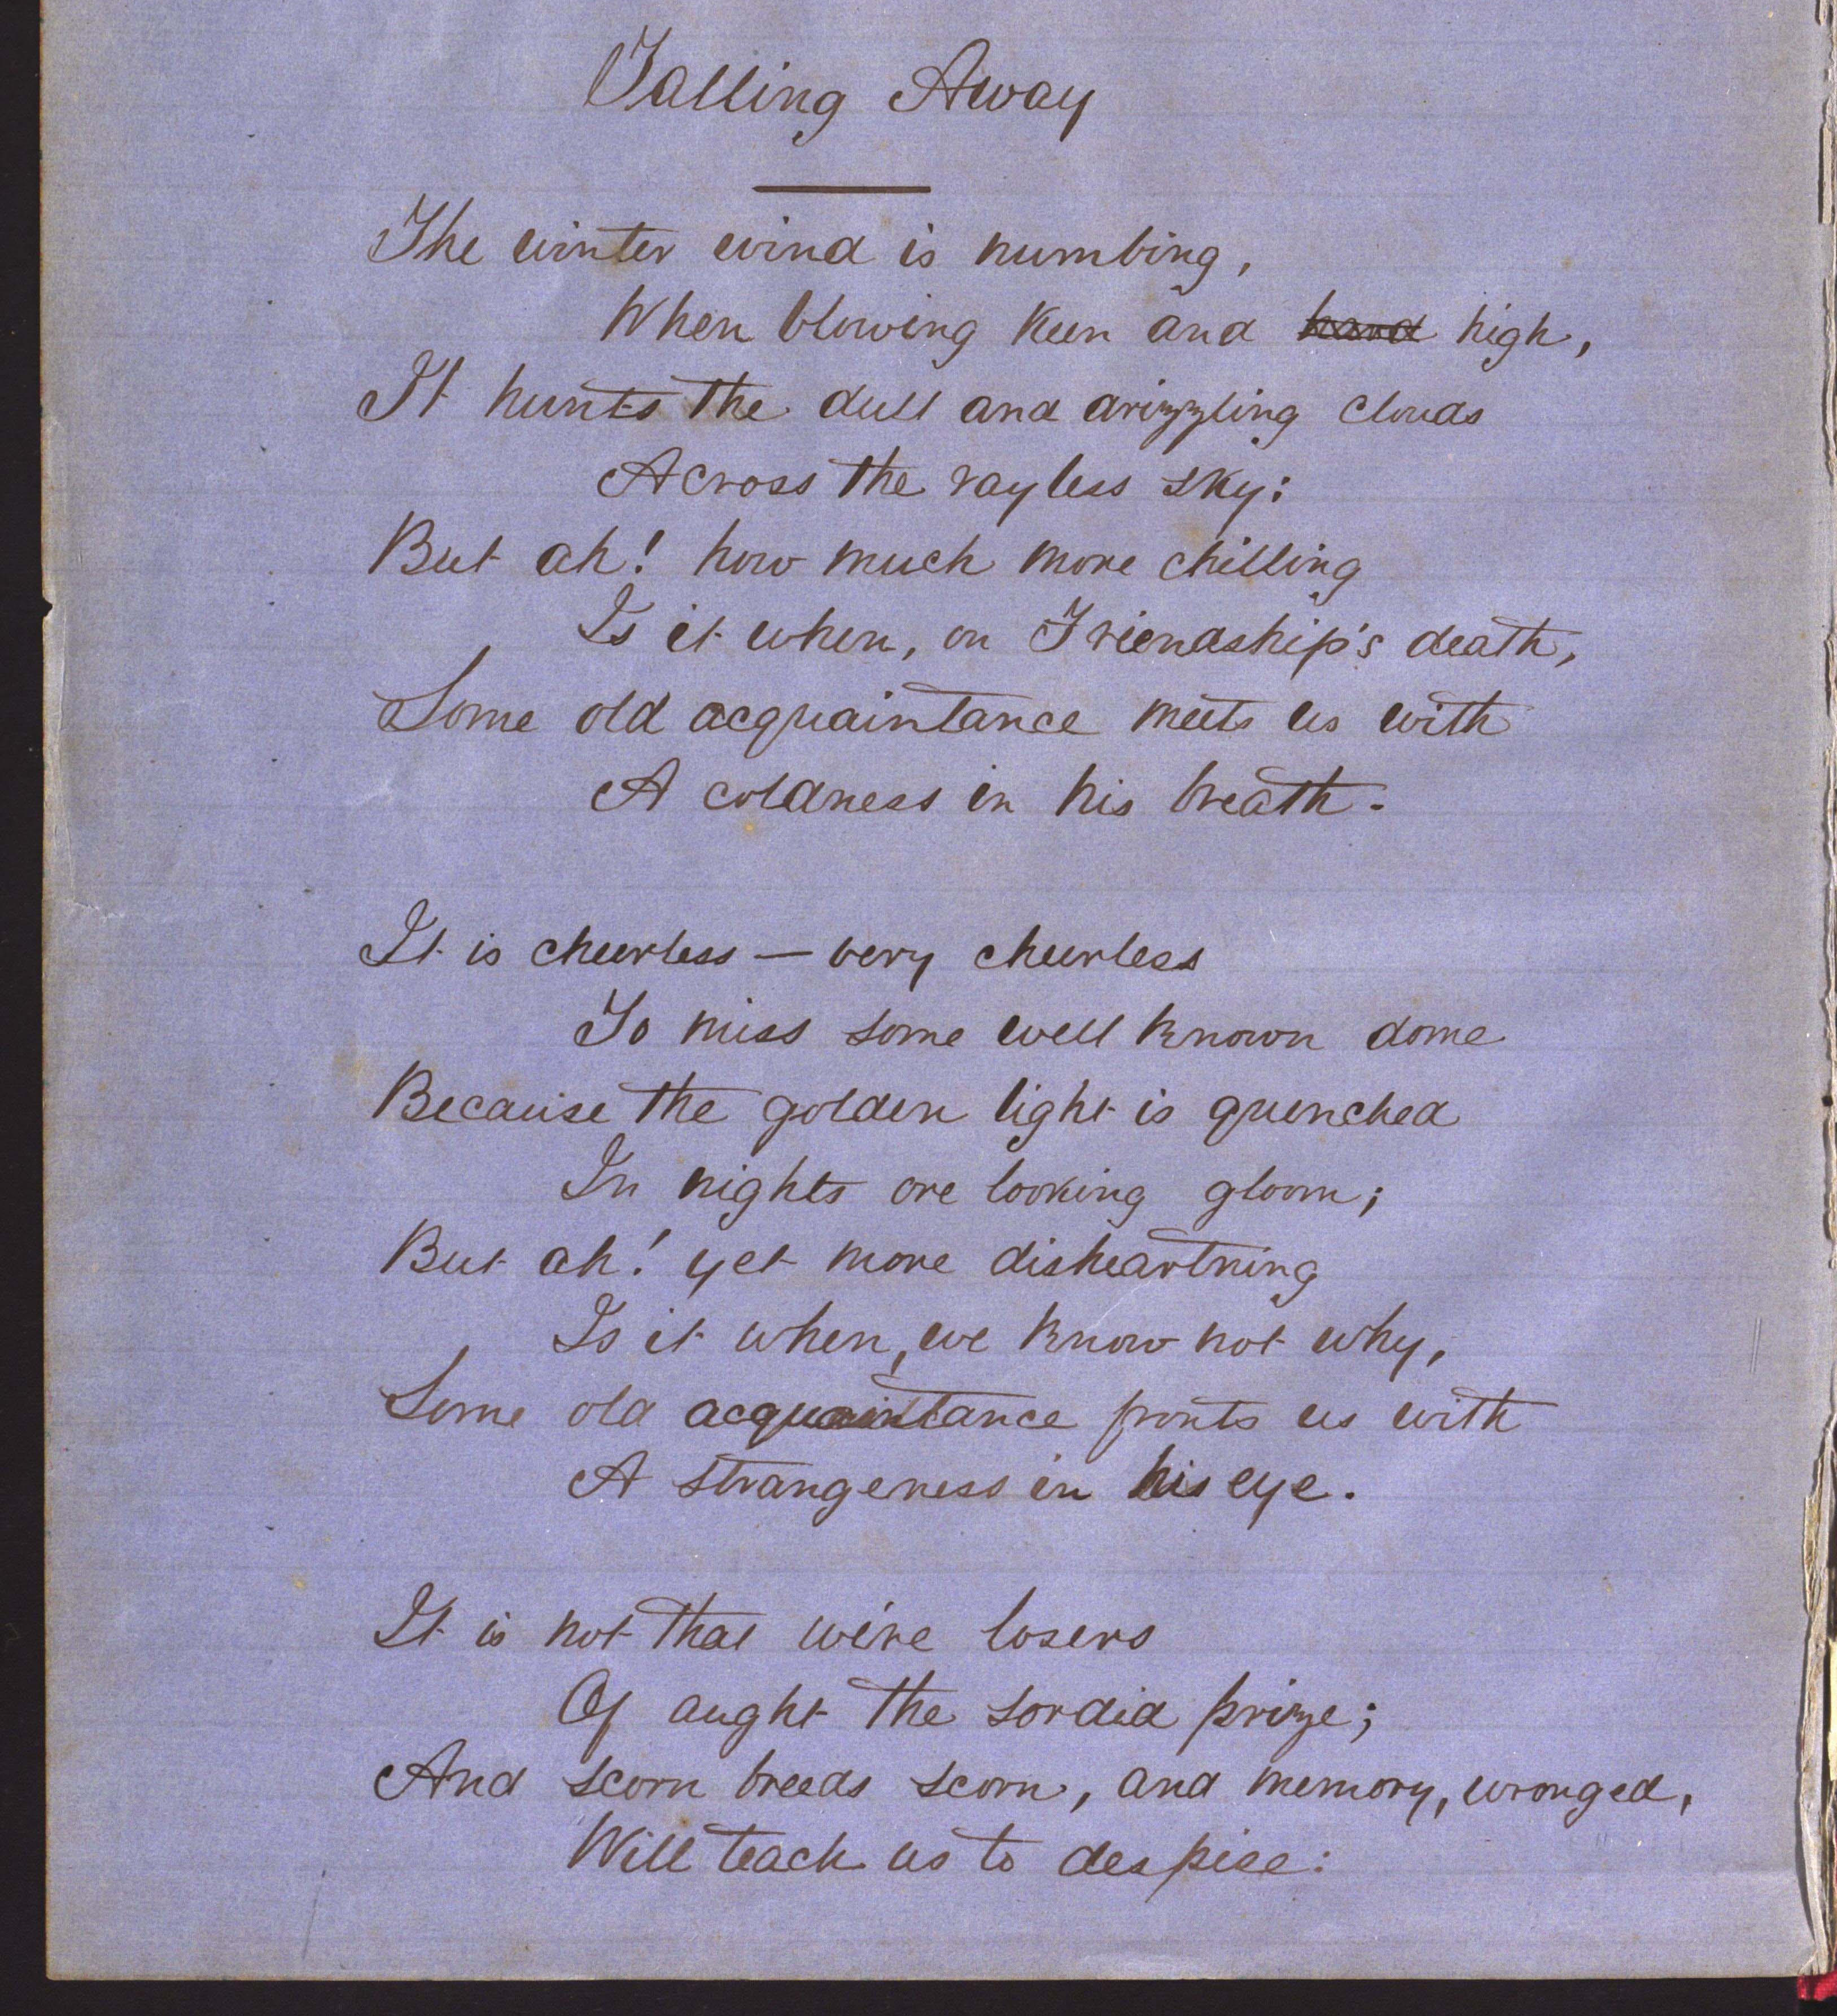 Falling Away
The winter wind is numbing,
When blowing keen and hard high,
It hunts the dull and drizzling clouds
Across the rayless sky:
But ah! how much more chilling
Is it when, on Friendship's death,
Some old acquaintance meets us with
A coldness in his breath.
It is cheerless — very cheerless
To miss some well known dome
Because the golden light is quenched
In nights ore looking gloom;
But ah! yet more disheartning
Is it when, we know not why,
Some old acquaintance fronts us with
A strangeness in his eye.
It is not that we're losers
Of aught the sordid prize;
And scorn breeds scorn, and memory, wronged,
Will teach us to despise: